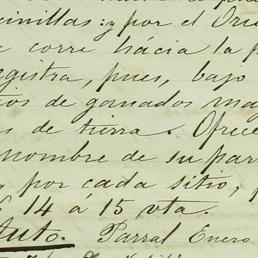 cinillas: y por el Orie
corre hácia la p
egistra, pues, bajo
ios de ganados ma
s de tierra. Ofrece
nombre de su par
por cada sitio,
f. 14 á 15 vta.
tuto. Parral Enero